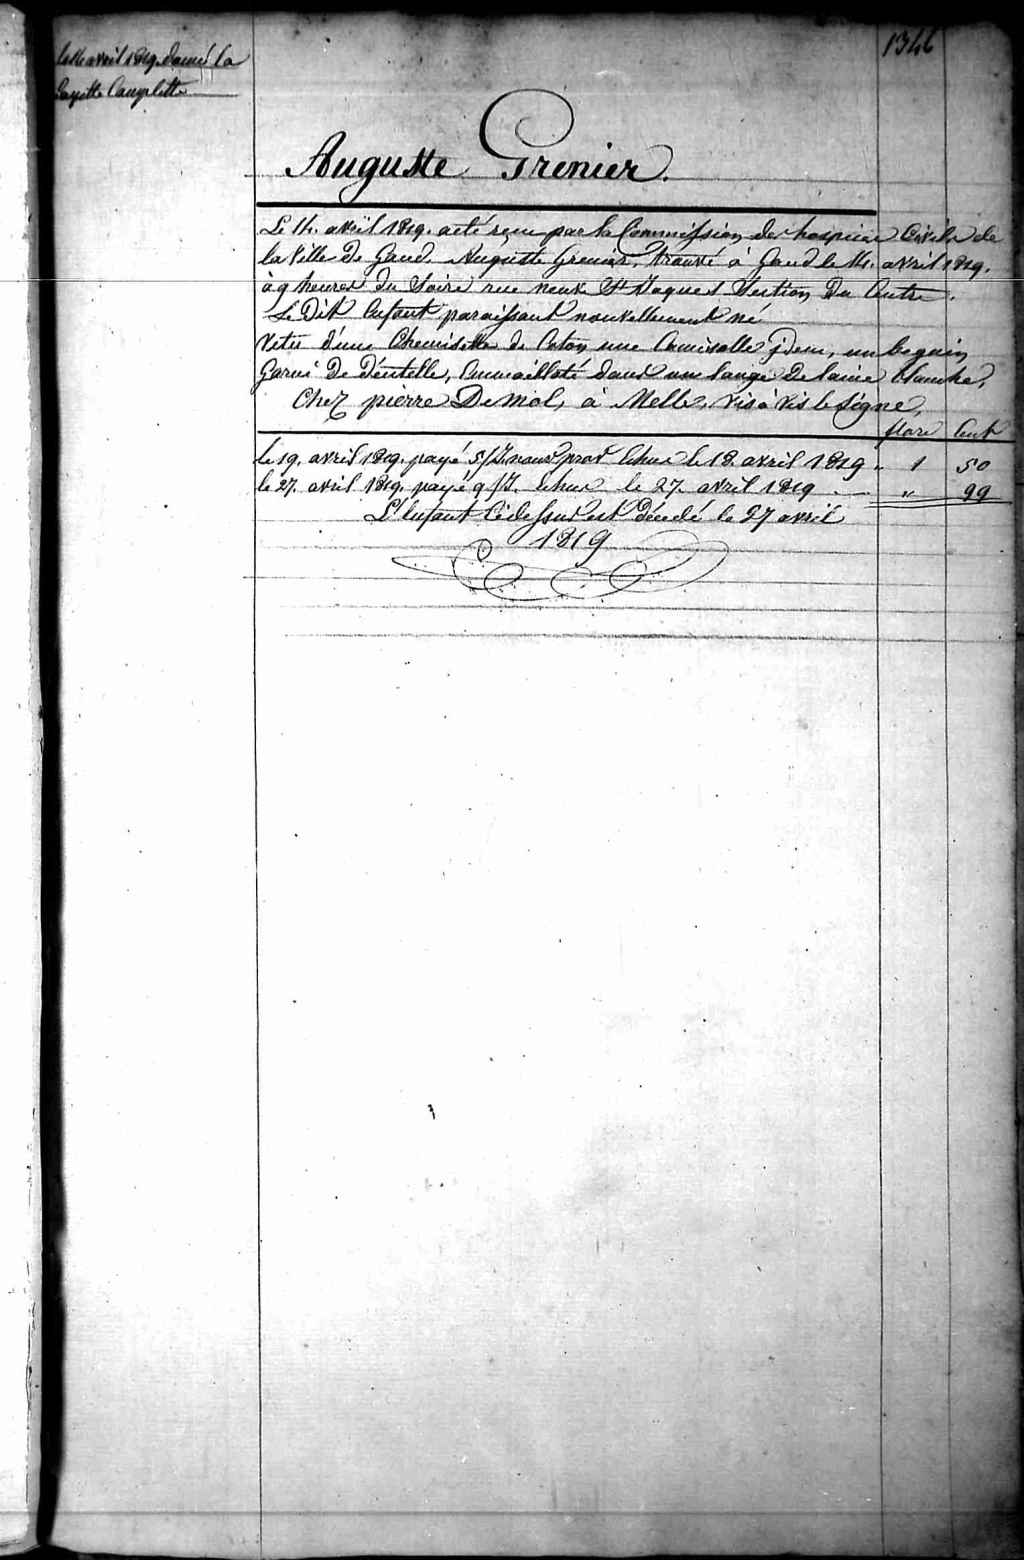 1346
le 16 avril 1819. donné la
Layette Complette
Auguste Grenier.
Le 14. avril 1819. a été reçu par la Commission des hospices Civils de
la Ville de Gand. Auguste Grenier, trouvé à Gand le 14. avril 1819.
à 9 heures du Soire rue neuve St Jaques Section Du Centre.
Le Dit Enfant paraissant nouvellement né
Vetu d'une Chemisette de Coton une Camisolle jdem, un beguin
Garni De Dentelle, Emmailloté dans un lange De laine blanche,
Chez pierre De Mol, à Melle, vis à vis le Signe,
flore Cent
le 19. avril 1819. payé 5/J. nour prov echue le 18. avril 1819 " 1 50
le 27. avril 1819. payé 9/J. echue le 27. avril 1819 " 99
L'Enfant Cidessus est Décedé le 27 avril
1819